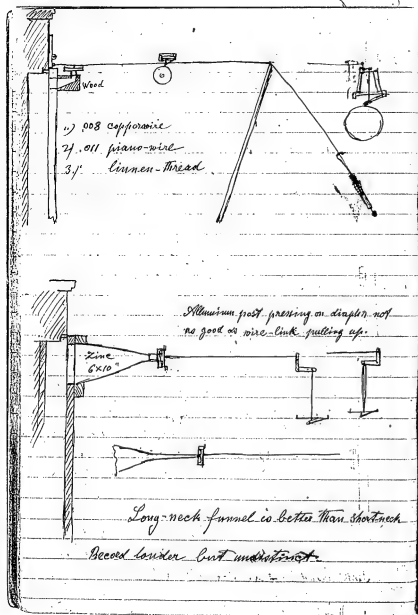 Wood
1) .008 copperwire
2) .011 piano-wire
3) linnen-thread
Alluminium post pressing on diaphr. not
as good as wire-link pulling up.
Zinc
6x10"
Long-neck funnel is better than short neck
Record louder but undistinct.